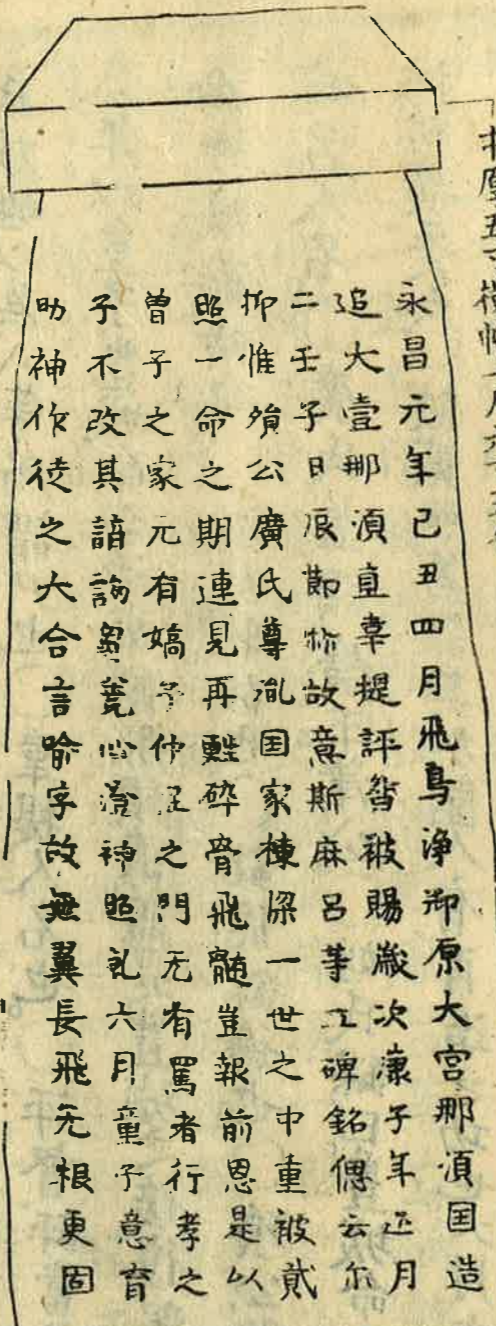 永昌元年己丑四月飛鳥浄御原大宮那須国造
追大壹那須直韋提評督被賜歳次康子年正月
二壬子日辰節殄故意斯麻呂等立碑銘偲云尓
仰惟殞公廣氏尊胤国家棟梁一世之中重被貳
照一命之期連見再甦砕骨飛髄豈報前恩是以
曽子之家无有嬌子仲尼之門无有罵者行孝之
子不改其語 心澄神照乱六月童子意育
助神作徒之大合言喩字故無翼長飛无根更固